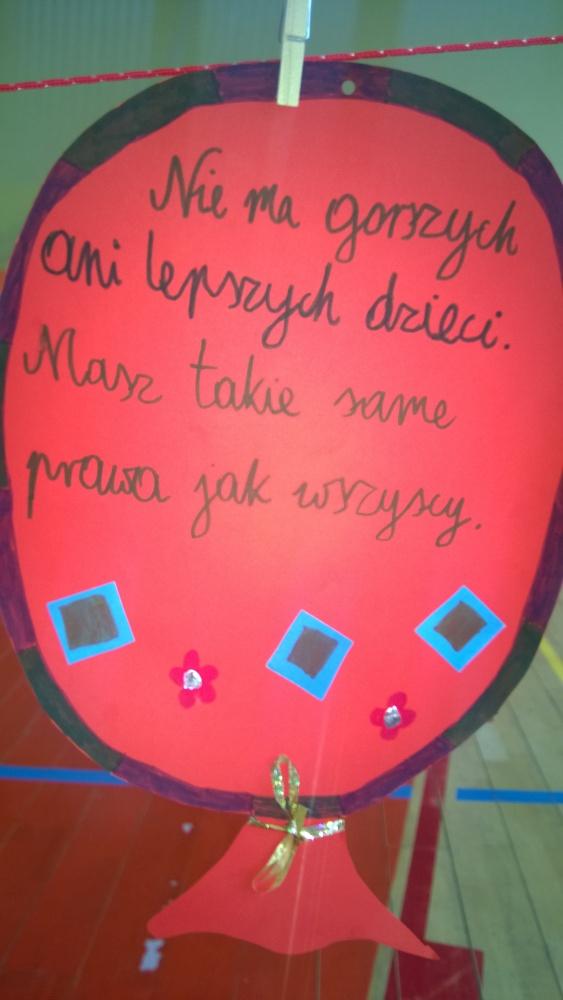 Nie ma gorszych
ani lepszych dzieci.
Masz takie same
prawa jak wszyscy.